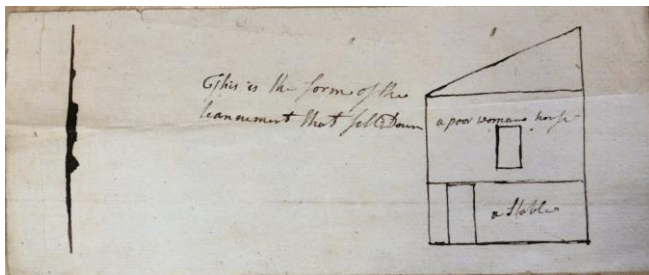 This is the forme of the
teanement that fell Down
a poor womans house
a Stable